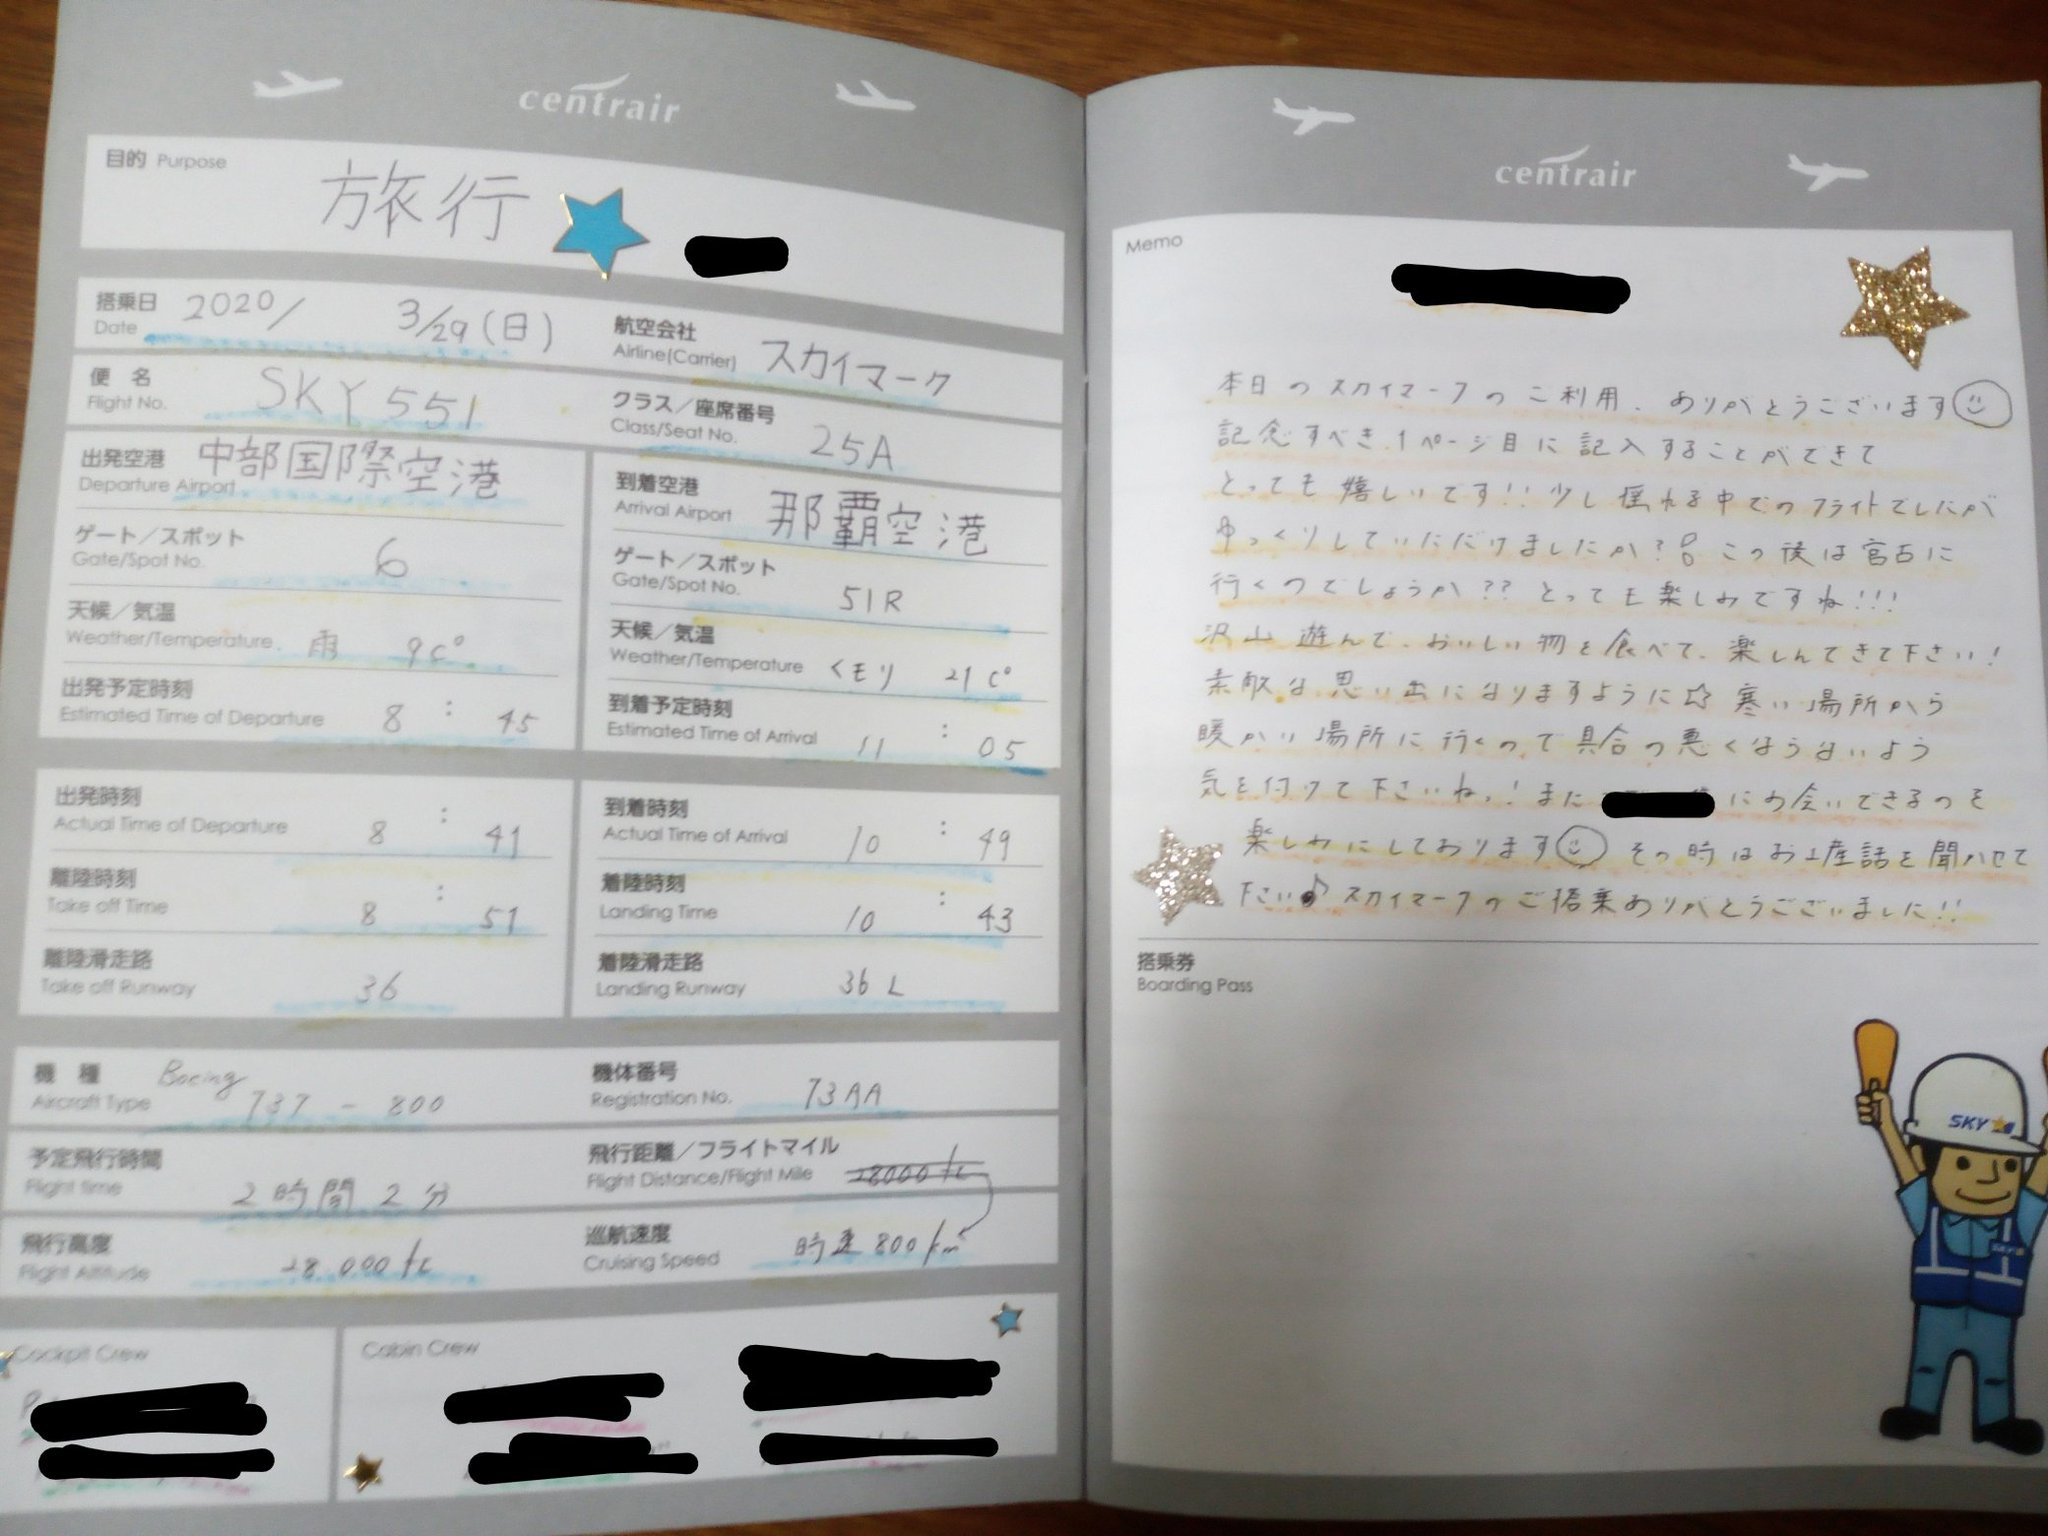 centrair
目的 Purpose
旅行
搭乗日 Date 2020/ 3/29(日)
航空会社 Airline(Carrier) スカイマーク
便 名 Flight No. SKY 551
クラス/座席番号 Class/Seat No. 25A
出発空港 Departure Airport 中部国際空港
到着空港 Arrival Airport 那覇空港
ゲート/スポット Gate/Spot No. 6
ゲート/スポット Gate/Spot No. 51R
天候/気温 Weather/Temperature 雨 9C°
天候/気温 Weather/Temperature くモリ 21C°
出発予定時刻 Estimated Time of Departure 8 : 45
到着予定時刻 Estimated Time of Arrival 11 : 05
出発時刻 Actual Time of Departure 8 : 41
到着時刻 Actual Time of Arrival 10 : 49
離陸時刻 Take off Time 8 : 51
着陸時刻 Landing Time 10 : 43
離陸滑走路 Take off Runway 36
着陸滑走路 Landing Runway 36L
機 種 Aircraft Type Boeing 737-800
機体番号 Registration No. 73AA
予定飛行時間 Flight time 2時間2分
飛行距離/フライトマイル Flight Distance/Flight Mile
飛行高度 Flight Altitude 28000ft
巡航速度 Cruising Speed 時速800km
Cockpit Crew
Cabin Crew
centrair
Memo
本日のスカイマークのご利用、ありがとうございます
記念すべき1ページ目に記入することができて
とっても嬉しいです!!少し揺れる中でのフライトでしたが
ゆっくりしていただけましたか? この後は宮古に
行くのでしょうか??とっても楽しみですね!!!
沢山遊んで、おいしい物を食べて、楽しんできて下さい!
素敵な思い出になりますように☆ 寒い場所から
暖かい場所に行くので具合の悪くならないよう
気を付けて下さいねっ!また にお会いできるのを
楽しみにしております その時はお土産話を聞かせて
下さい♪スカイマークのご搭乗ありがとうございました!!
搭乗券
Boarding Pass
SKY
SKY